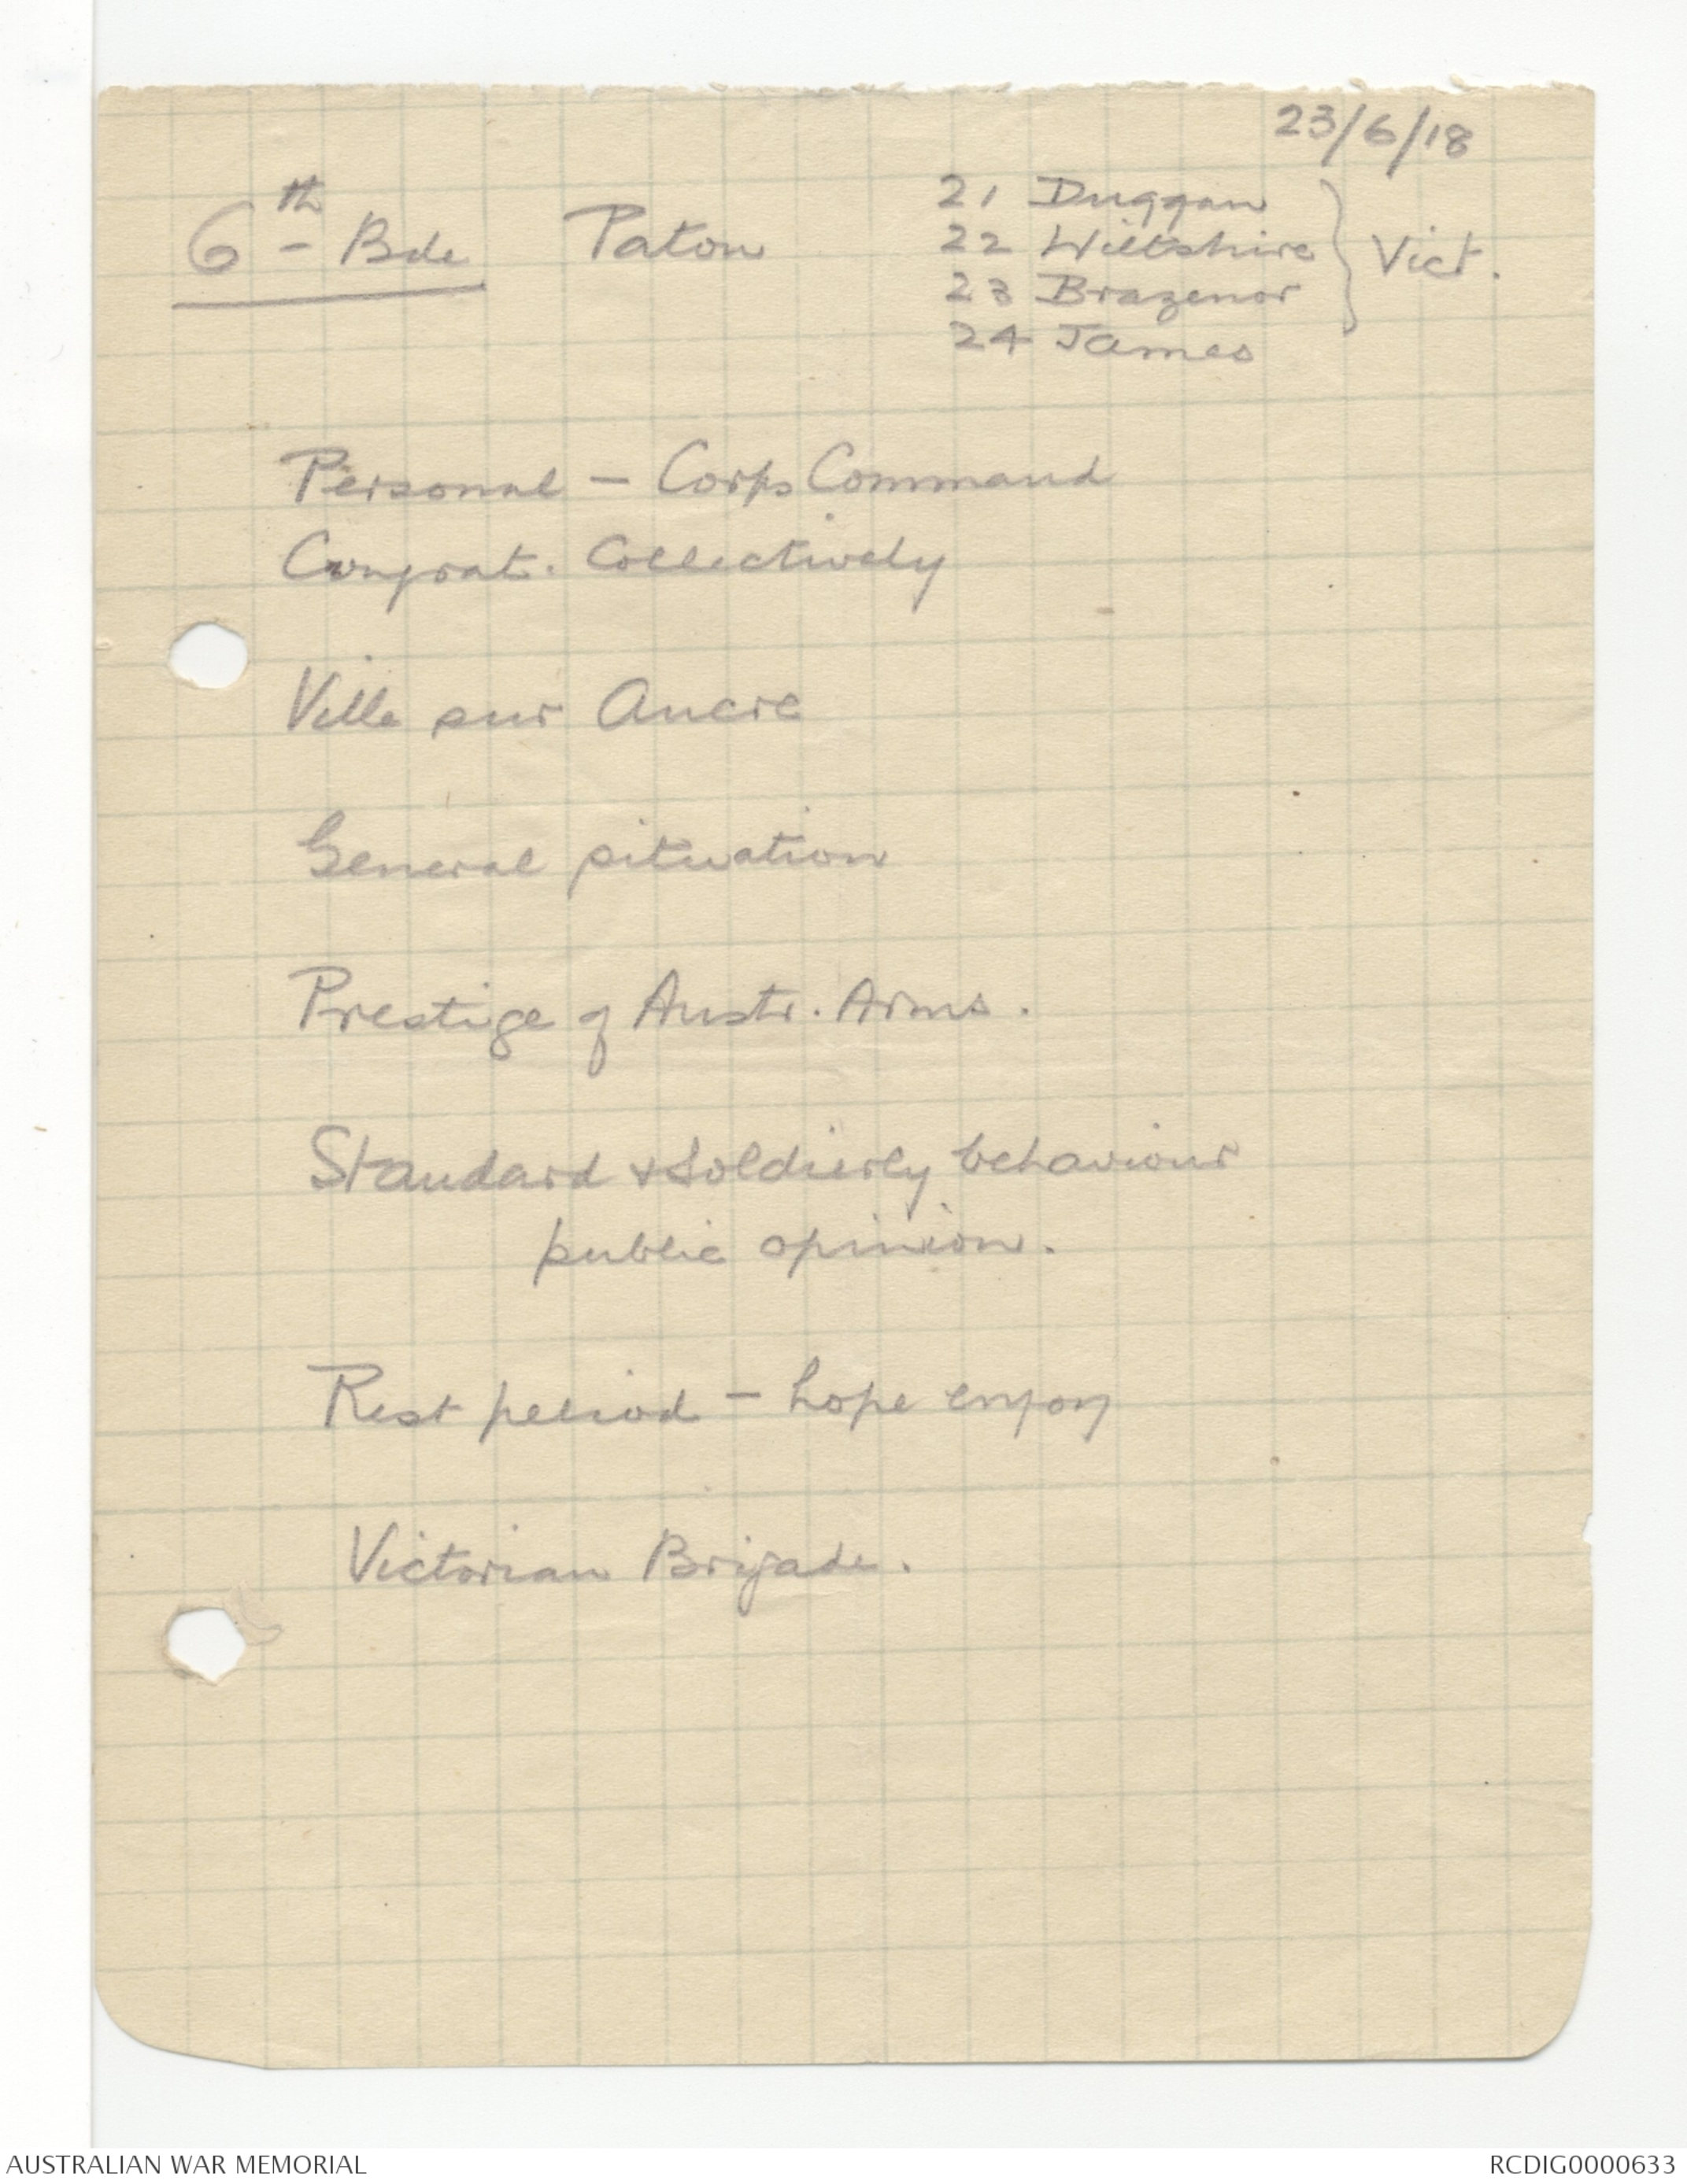 23/6/18
6th Bde Paton
21 Duggan
22 Wiltshire
23 Brazenor
24 James
} Vict.
Personal - Corps Command
Congrat. Collectively
Ville sur Ancre
General situation
Prestige of Austr. Arms.
Standard & Soldierly behaviour
public opinion.
Rest period - hope enjoy
Victorian Brigade.
AUSTRALIAN WAR MEMORIAL
RCDIG0000633